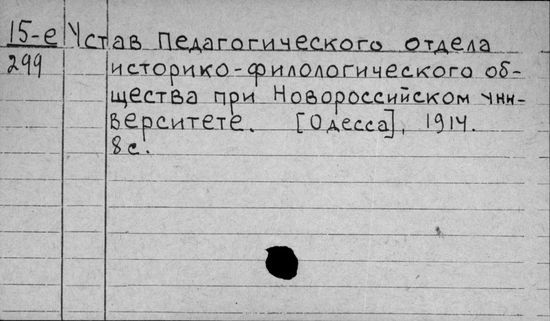 15-е Устав Педагогического отдела
299 историко-филологического об-
щества при Новороссийском уни-
верситете. [Одесса], 1914.
8с.